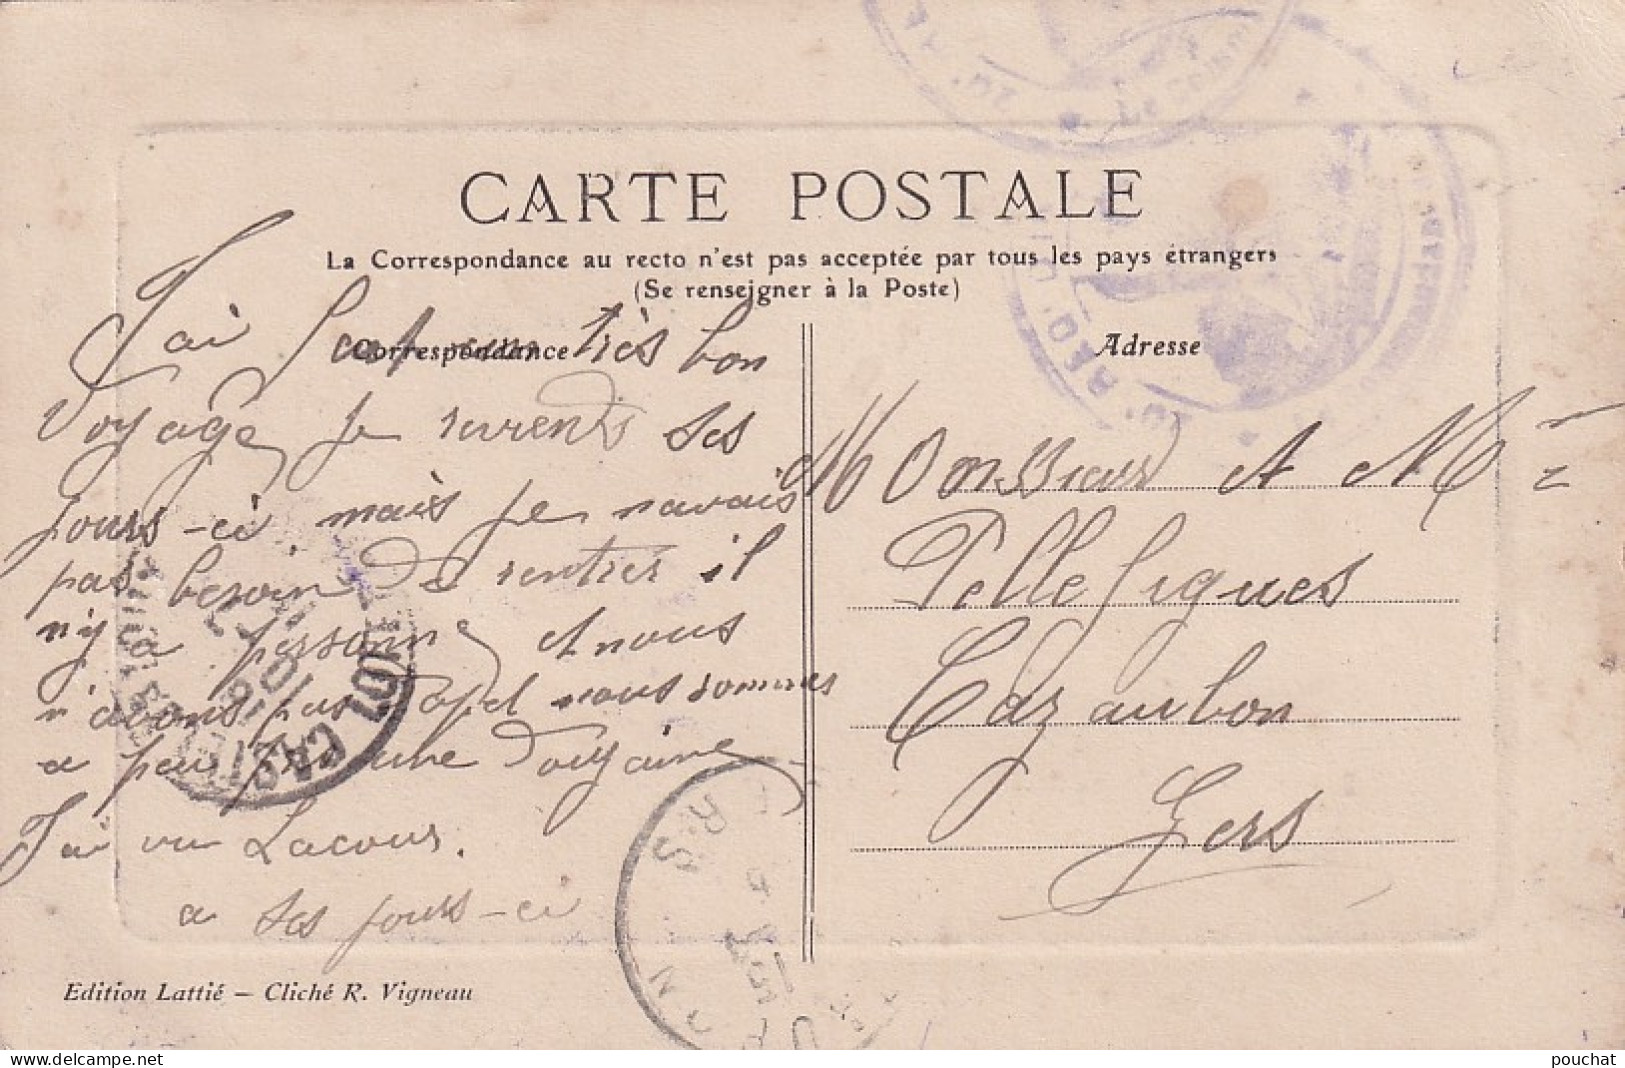 CARTE POSTALE
La Correspondance au recto n'est pas acceptée par tous les pays étrangers
(Se renseigner à la Poste)
Correspondance
J'ai fait un très bon
voyage je reviends ses
jours-ci mais je navais
pas besoin de rentrer il
n'y a personne et nous
n'avons pas nous sommes
a peu une douzaine
J'ai vu Lacour.
a ses jours-ci
Adresse
Monssieur et Mme
Pellefigues
Cazaubon
Gers
Edition Lattié – Cliché R. Vigneau
pouchat